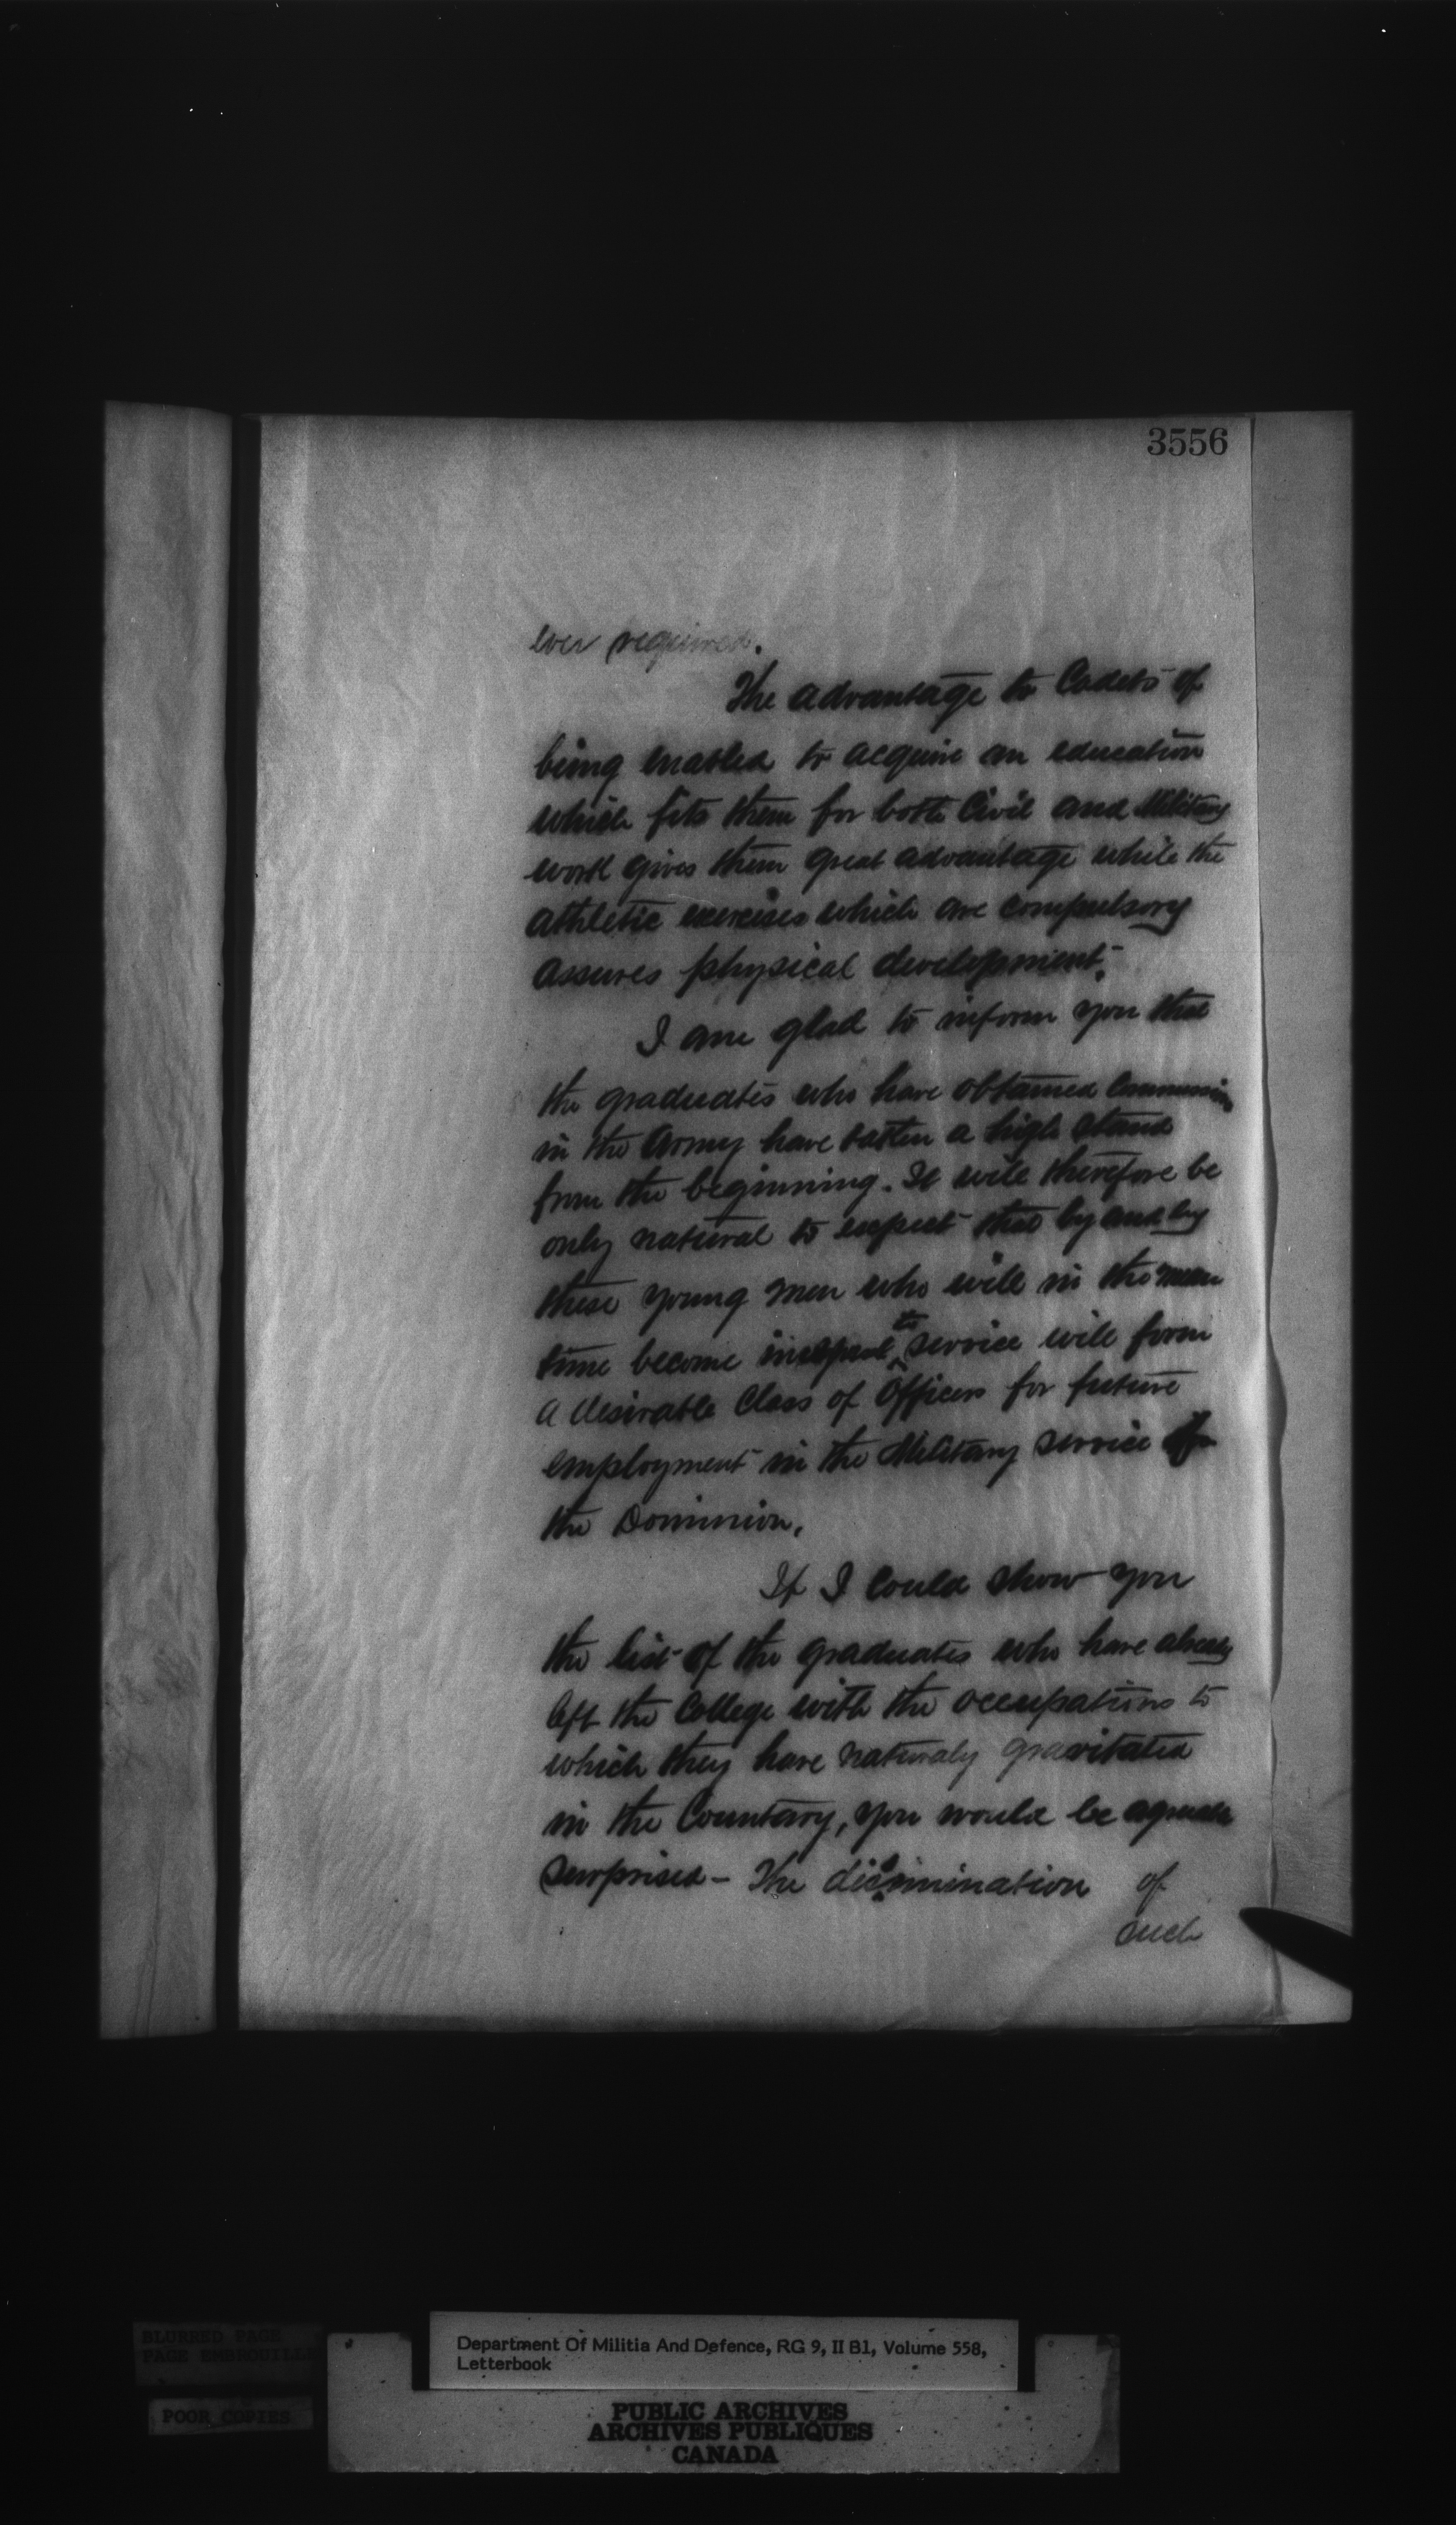 3556
ever required.
The advantage to Cadets of
being enabled to acquire an education
which fits them for both Civil and Military
work gives them great advantage while the
athletic exercises which are compulsory
assures physical development.
I am glad to inform you that
the graduates who have obtained Commissions
in the Army have taken a high stand
from the beginning. It will therefore be
only natural to expect that by and by
these young men who will in the mean
time become to service will form
a desirable Class of Officers for future
employment in the Military service of
the Dominion.
If I could show you
the list of the graduates who have already
left the College with the occupations to
which they have naturaly gravitated
in the Country, you would be
surprised - The of
such
BLURRED PAGE
PAGE EMBROUILLÉE
POOR COPIES
Department Of Militia And Defence, RG 9, II B1, Volume 558,
Letterbook
PUBLIC ARCHIVES
ARCHIVES PUBLIQUES
CANADA